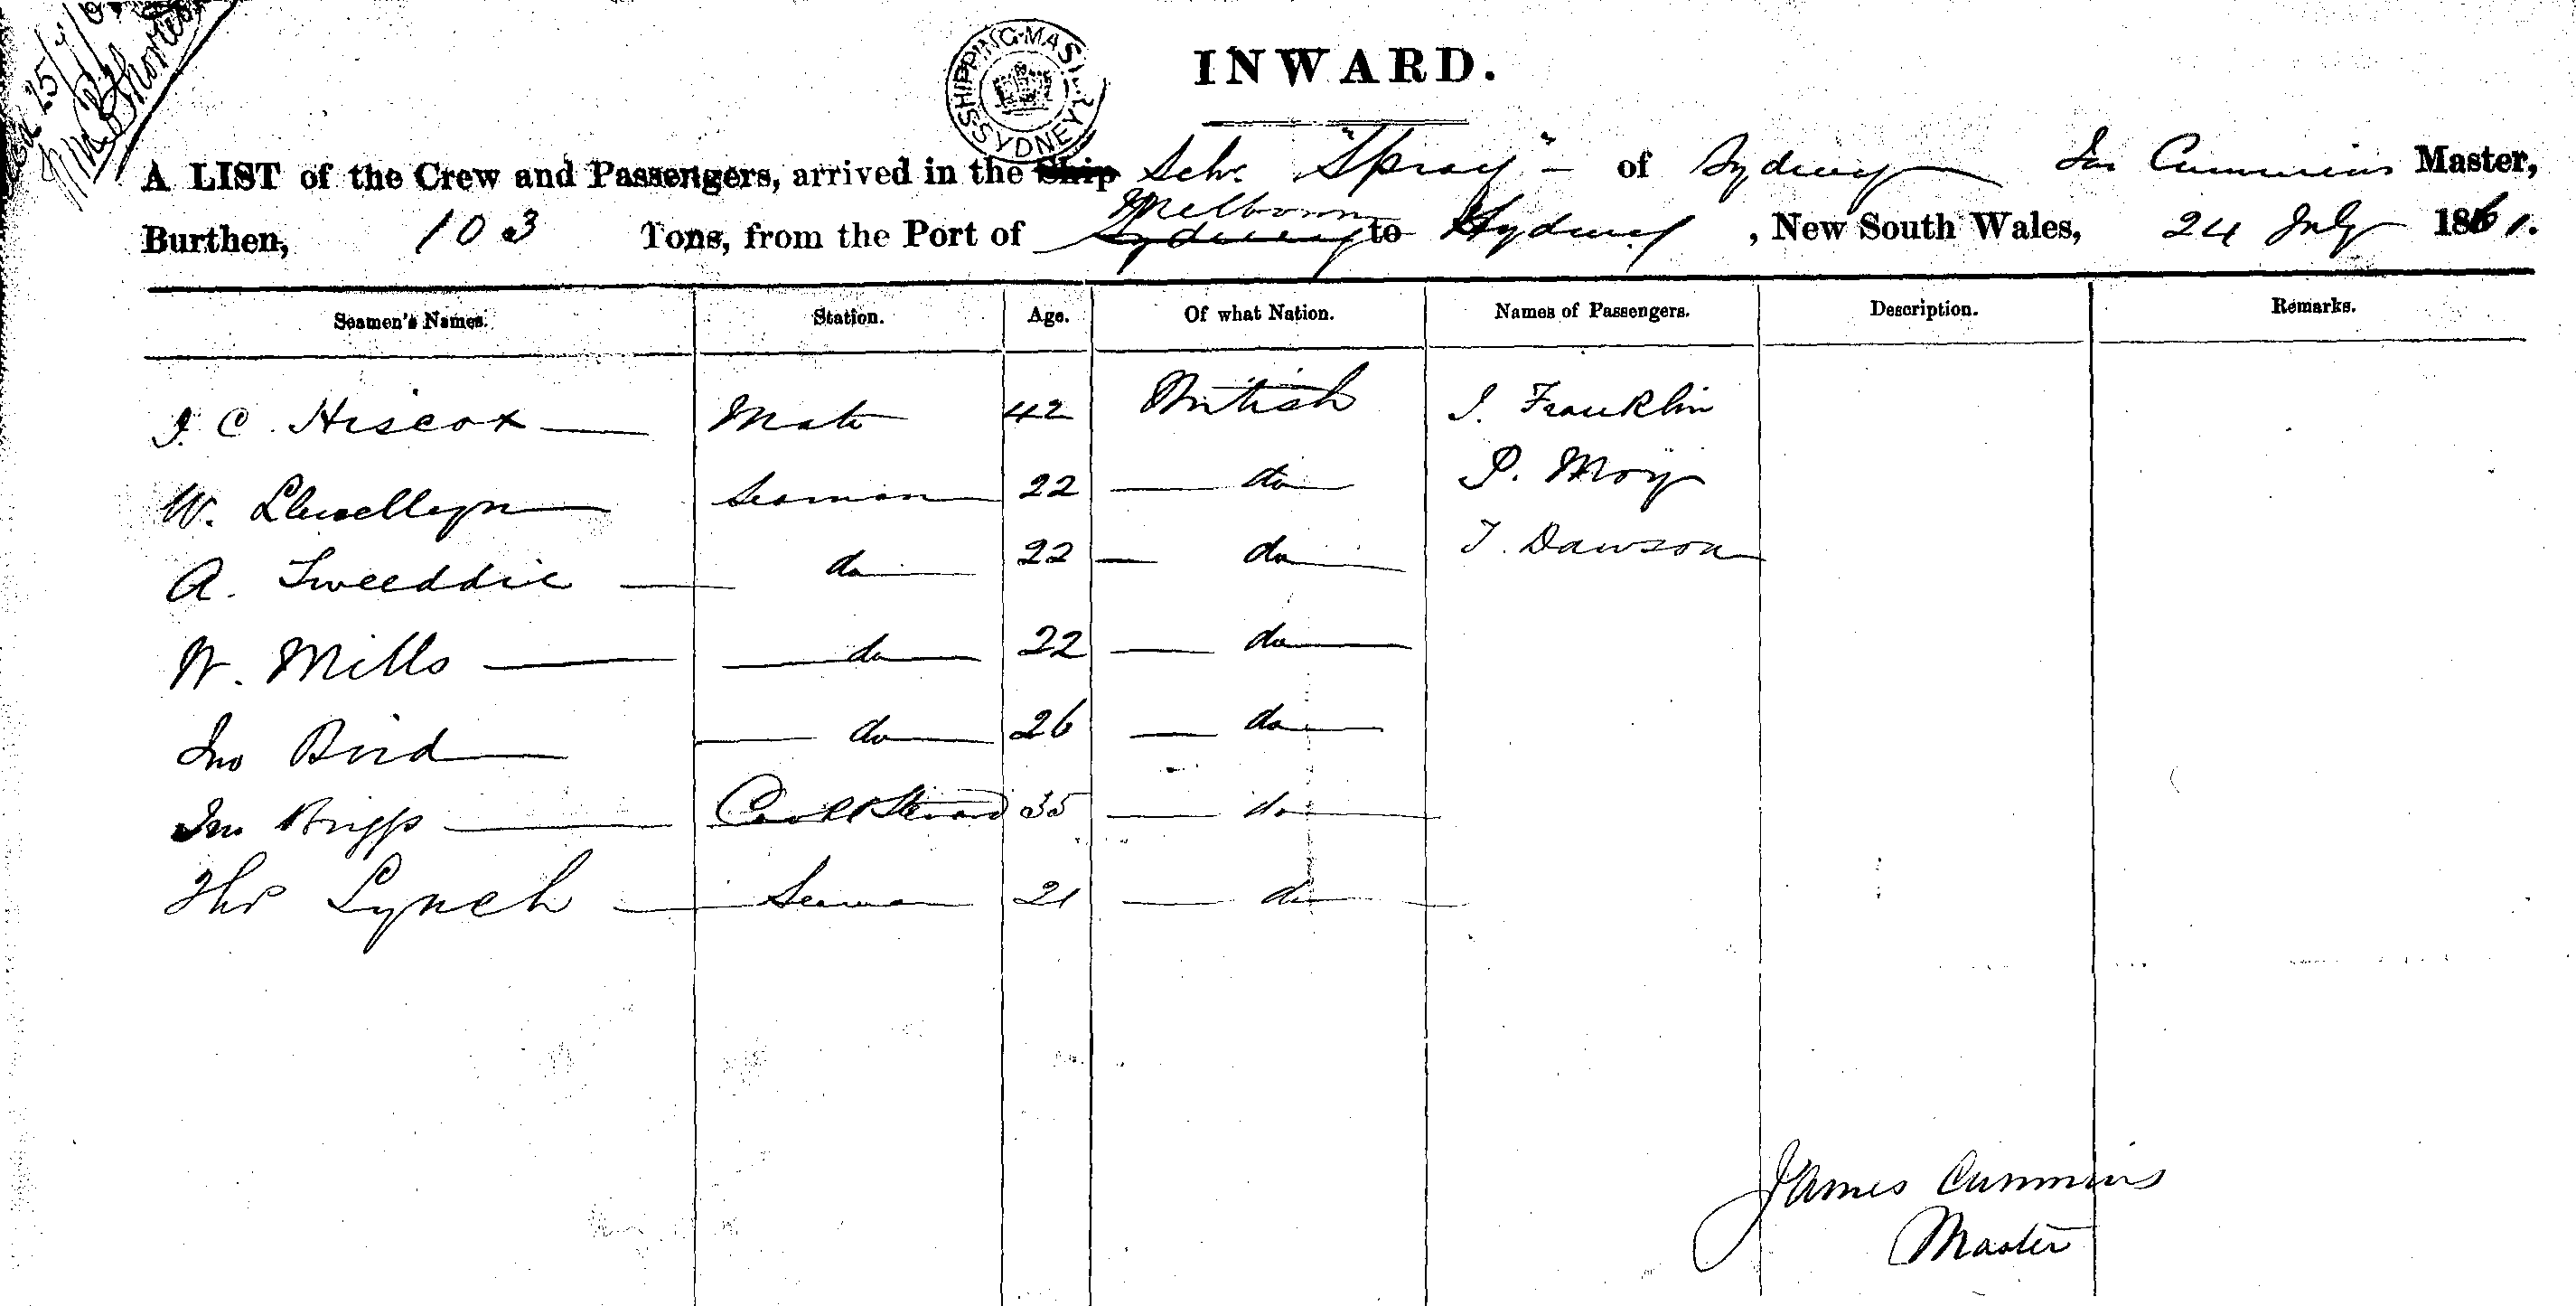 25/7/61
SHIPPING MASTER SYDNEY
INWARD.
A LIST of the Crew and Passengers, arrived in the Ship Schr. "Spray" of Sydney Jas Cummins Master,
Burthen, 103 Tons, from the Port of Sydney Melbourne to Sydney, New South Wales, 24 July 1861.
Seamen's Names. Station. Age. Of what Nation. Names of Passengers. Description. Remarks.
J. C. Hiscox Mate 42 British J. Franklin
W. Llewellyn Seaman 22 do P. Moy
A. Tweeddie do 22 do T. Dawson
W. Mills do 22 do
Jno Bird do 26 do
Jno Briggs Cook & Steward 35 do
Thos Lynch Seaman 21 do
James Cummins
Master